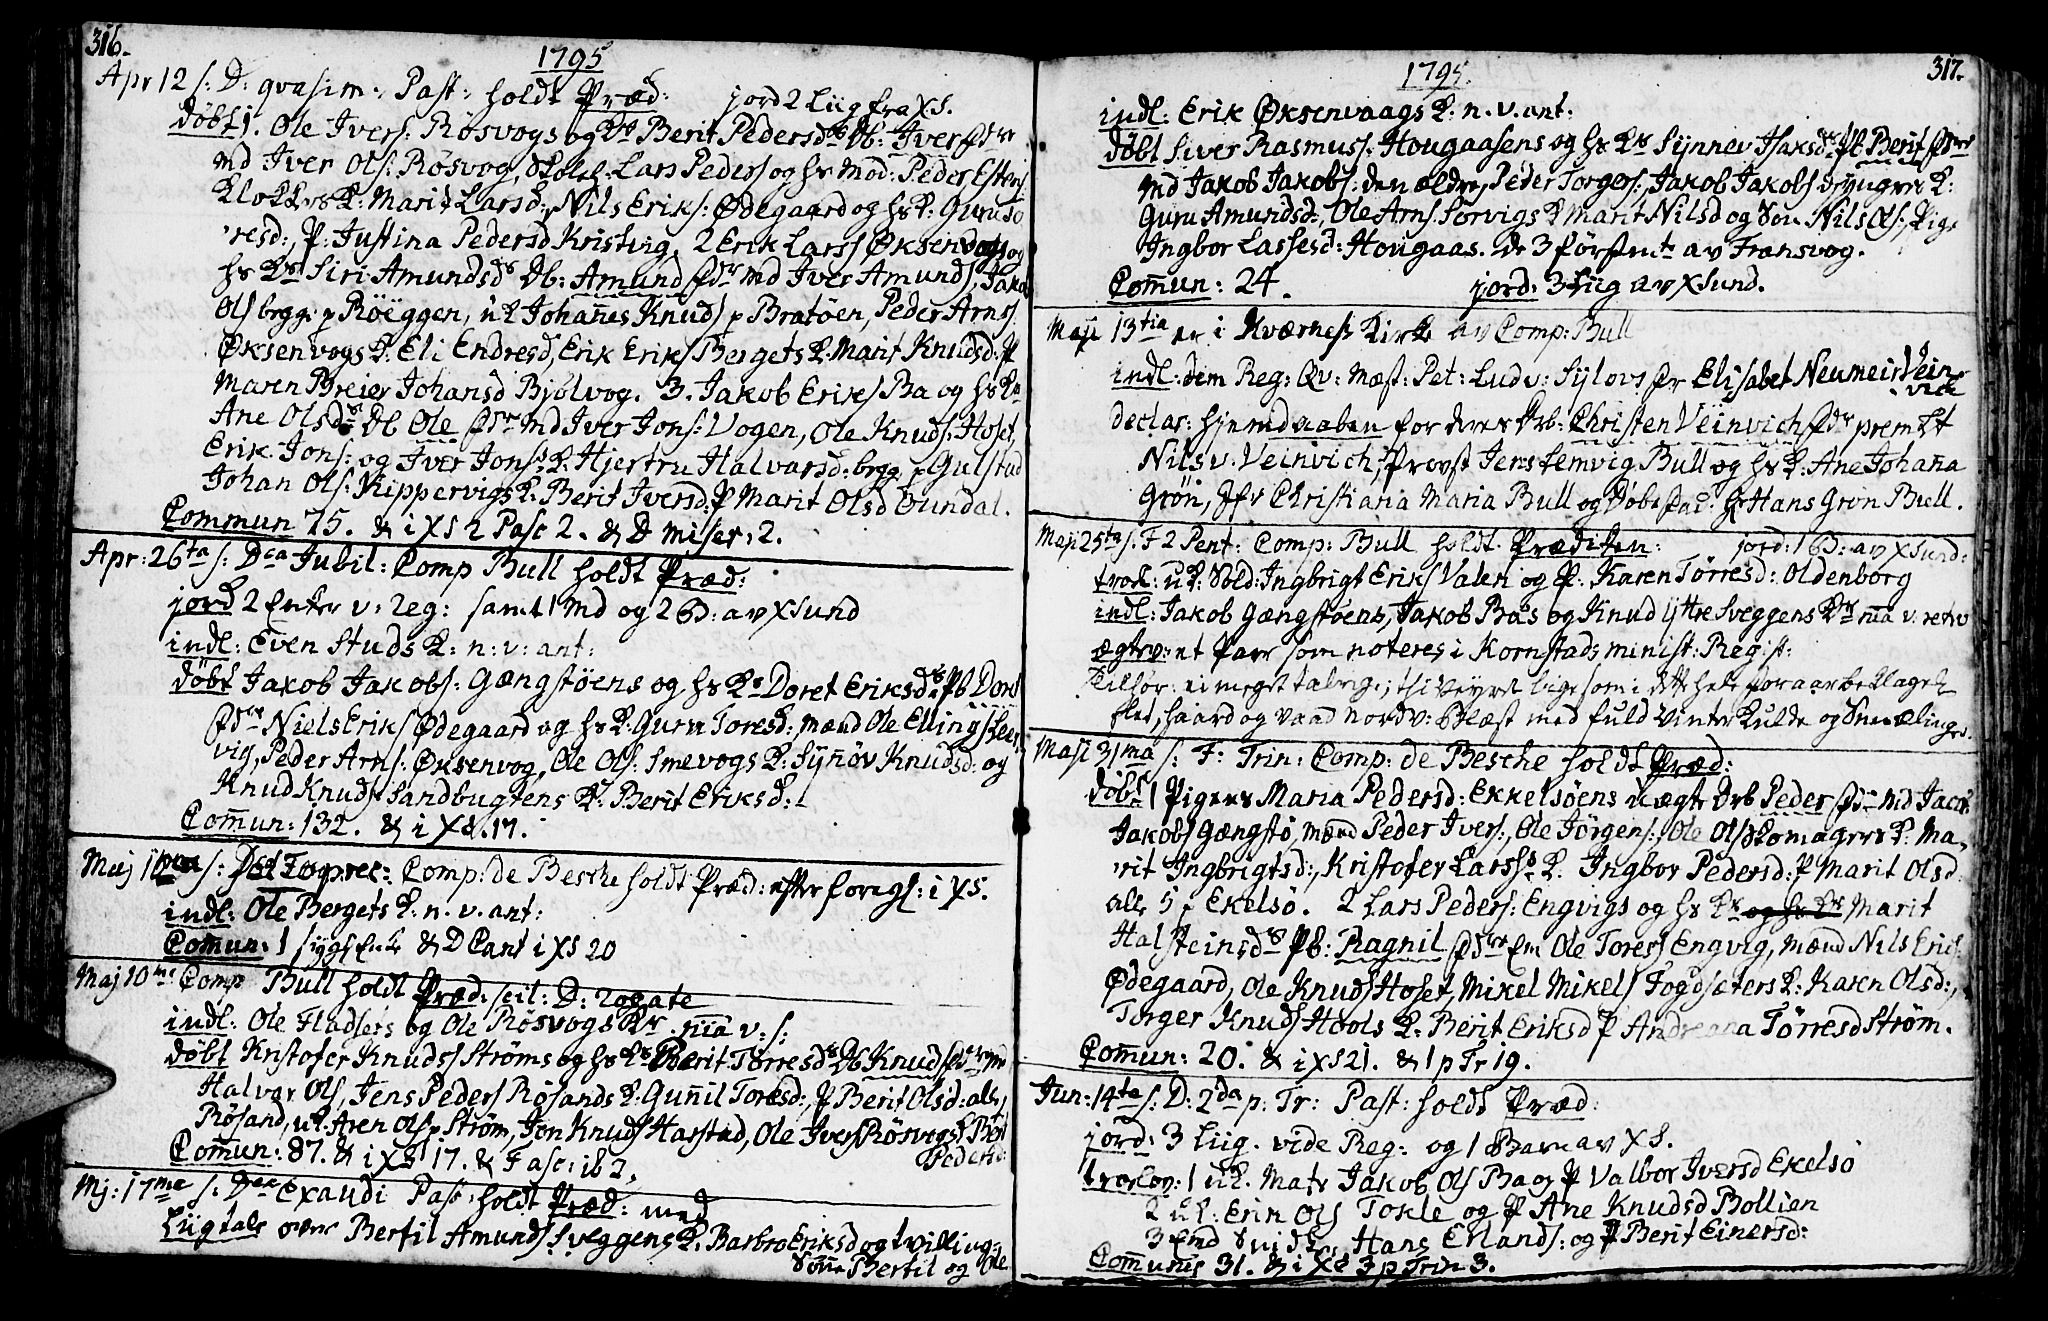 316.
1795
Apr 12 s: D: qvasim: Past: holdt Præd: jord 2 Liig fra XS.
Døbt 1. Ole Ivers: Rösvogs og Berit Pedersd Db: Iver
md Iver Ols: Rösvog, Lars Peders og hs Mod: Peder Estens:
Klokkers K: Marit Larsd:, Nils Eriks: Ødegaard og hs K: Guru
resd:, P: Justina Pedersd Kristvig, 2 Erik Larss Øksenvogs og
hs Ks Siri Amundsd Db: Amund md Iver Amunds, Jakob
Ols brgg: p Röeggen, uk Johañes Knuds p Bratöen, Peder Arns
Øksenvogs K: Eli Endresd, Erik Eriks Bergets K: Marit Knudsd: P
Maren Breier Johansd Bjölvog. 3. Jakob Eriks Ba og hs K
Ane Olsd Db Ole md Iver Jons: Vogen, Ole Knuds: Hoset,
Erik Jons: og Iver Jons K: Hjertru Halvarsd: brgg p Gulstad
Johan Ols: Kippervigs K: Berit Iversd: P Marit Olsd Gundal.
Commun 75. & i XS 2 Pasc 2. & D miser: 2.
Apr: 26ta s: Dca Jubil: Comp Bull holdt Præd:
jord 2 Enker v: Reg: samt 1 Md og 2 B: av Xsund
indl: Even Studs K: n: v: ant:
døbt Jakob Jakobs: Gængstöens og hs Ks Doret Eriksd Pb Doret
Niels Eriks Ødegaard og hs K: Guru Toresd: mænd Ole Ellings
vig, Peder Arns: Øksenvog, Ole Ols: Smevogs K: Syñöv Knudsd: og
Knud Knuds Sandbugtens K: Berit Eriksd:
Coñun: 132. & i XS. 17.
Maj s: Comp: de Besche holdt Præd: efter foregs: i XS.
indl: Ole Bergets K: n. v. ant:
Coñun: 1 & D Cant i XS 20
Maj 10me Comp Bull holdt Præd: seil: D: Rogate
indl: Ole Fladsets og Ole Rösvogs Kr v: s:
døbt Kristofer Knuds Ströms og hs Ks Berit Törresd Db Knud
Halvor Ols, Jens Peders Rösands K: Guñil Toresd:, P Berit Olsd: alle,
Rösand, uk Aren Ols p Ström, Jon Knuds Harstad, Ole Ivers Rösvogs K Berit
Pedersd:
Coñun: 87. & i XS 17. &
Mj: 17me s: Exaudi Past: holdt Præd: med
Liigtale over Bertil Amunds Sveggens K. Barbro Eriksd og tvilling:
Söñe Bertil og Ole
317.
1795.
indl: Erik Øksenvaags K: n. v. ant:
døbt Siver Rasmuss: Hougaasens og hs Ks Synnev Isaksd Pb Berit
md Jakob Jakobs: den ældre, Peder Torgers:, Jakob Jakobs d yngres K:
Guru Amundsd:, Ole Arns: Sorvigs K Marit Nilsd og Sön Nils Ols:, Pige
Ingbor Lassesd: Hougaas. de 3 förstnte av Fransvog.
Coñun: 24. jord: 3 Liig av Xsund.
Maji 13tia er i Kværnes Kirke av Comp: Bull
indl: dem Reg: Qv: Mæst: Pet: Ludv: Sylovs fr Elisabet Neumeir Vein-
vich
declar: hjemdaaben for deres Drb: Christen Veinvich prem Lt
Nils v: Veinvich, Provst Jens Lemvig Bull og hs K: Ane Johaña
Grön, Jfr Christiana Maria Bull og Döbe fad: Hr Hans Grön Bull.
Maji 25ta s. F 2 Pent: Comp: Bull holdt Prædiken: jord: 1 B: av Xsund:
trol: uk: Sold: Ingbrigt Eriks Valen og P: Karen Törresd: Oldenborg
indl: Jakob Gængstöens, Jakob Bas og Knud Yttre Sveggens Kr
ægtev: et Parr som noteres i Kornstads minist: Regist:
ei meget talrige, thi Veyret lige som i dette hele foraar beklageL
slet, haard og vaad nordv: Blæst med fuld Vinter Kulde og Sneeælinger.
Maji 31ma s: F: Trin: Comp: de Besche holdt Præd:
döbt 1 Pigens Maria Pedersd: Ekkelsöens uægte Drb Peder md Jacob
Jakobs Gængstö, mænd Peder Ivers:, Ole Jörgens:, Ole Ols Skomagers K: Ma,
rit Ingbrigtsd:, Kristofer Larss K. Ingbor Pedersd: P Marit Olsd:
alle 5 p Ekelsö. 2 Lars Peders: Engvigs og hs Ks og hs Ks Marit
Halsteinsd Pb: Ragnil Em Ole Tores Engvig, mænd Nils Eriks:
Ødegaard, Ole Knuds Hoset, Mikel Mikels Fogdsæters K: Karen Olsd:,
Torger Knuds Hools K: Berit Eriksd P Andreana Törresd Ström.
Coñun: 20. & i XS 21. & 1 p Tr 19.
Jun: 14ta s: D: 2da p: Tr: Past: holdt Præd:
jord: 3 Liig. vide Reg: og 1 Barn av XS.
trolov: 1 uk. Matr Jakob Ols Ba og P Valbor Iversd Ekelsö
2 uk: Erik Ols Tokle og P Ane Knudsd Bollien
3 Hans Erlands: og P Berit Einersd:
Coñunes 31. & i XS 3 p Trin 3.